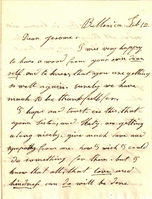 Billerica Feb 12
Dear Jerome:
I was very happy
to have a word from your own dear
self, and to know that you are getting
so well again: surely we have
much to be thankful for.
I hope and trust in this, that
your sister, and Katy, are getting
along nicely, give much love and
sympathy from me, how I wish I could
do something for them, but I
know that all, that love and
kindness can do will be done